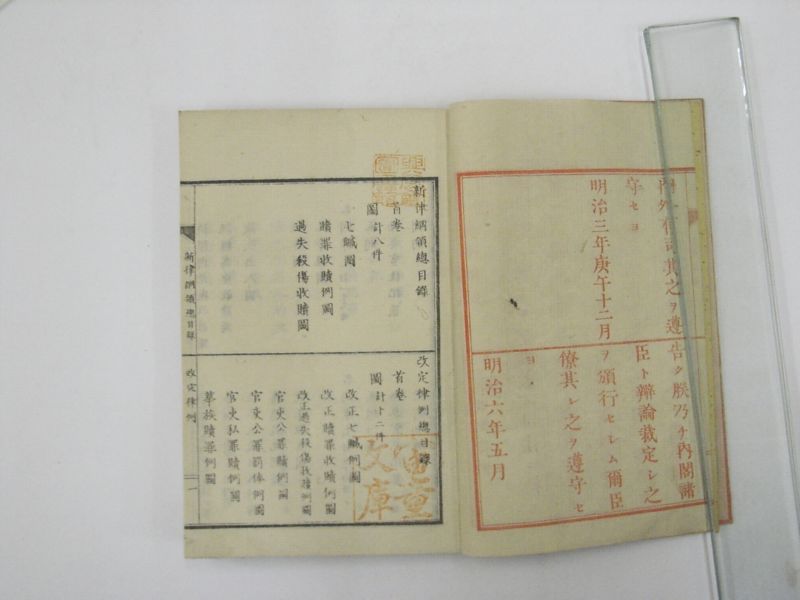 内外有司其之ヲ遵
守セヨ
明治三年庚午十二月
告ク朕乃チ内閣諸
臣ト辯論裁定シ之
ヲ頒行セシム爾臣
僚其レ之ヲ遵守セ
ヨ
明治六年五月
新律綱領總目錄
首卷
圖計八件
七贓圖
贖罪收贖例圖
過失殺傷收贖圖
改定律例總目錄
首卷
圖計十二件
改正七贓例圖
改正贖罪收贖例圖
改正過失殺傷收贖例圖
官吏公罪贖例圖
官吏公罪罰俸例圖
官吏私罪贖例圖
華族贖罪例圖
新律綱領總目錄
改定律例
一
文庫